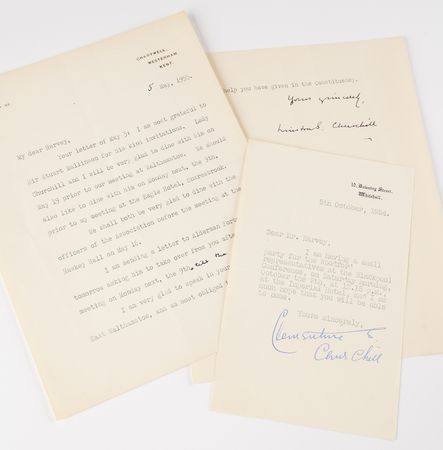 CHARTWELL,
WESTERHAM,
KENT.
5 May, 1955.
My dear Harvey,
Your letter of May 3: I am most grateful to
Sir Stuart Mallinson for his kind invitations. Lady
Churchill and I will be very glad to dine with him on
May 19 prior to our meeting at Walthamstow. We should
also like to dine with him on Monday next, the 9th,
prior to my meeting at the Eagle Hotel, Snaresbrook.
We shall both be very glad to dine with the
officers of the Association before the meeting at the
Hawkey Hall on May 16.
I am sending a letter to Alderman
tomorrow asking him to take over from you
meeting on Monday next, the 9th till the
I am very glad to speak in your
East Walthamstow, and am most obliged
help you have given in the Constituency.
Yours sincerely,
Winston S. Churchill
10, Downing Street,
Whitehall.
5th October, 1954.
Dear Mr. Harvey,
I am having a small
party for the Constituency
representatives at the Blackpool
Conference, on Saturday morning,
October the 9th, at 12.15 p.m.
at the Imperial Hotel, and I so
much hope that you will be able
to come.
Yours sincerely,
Clementine S
Churchill